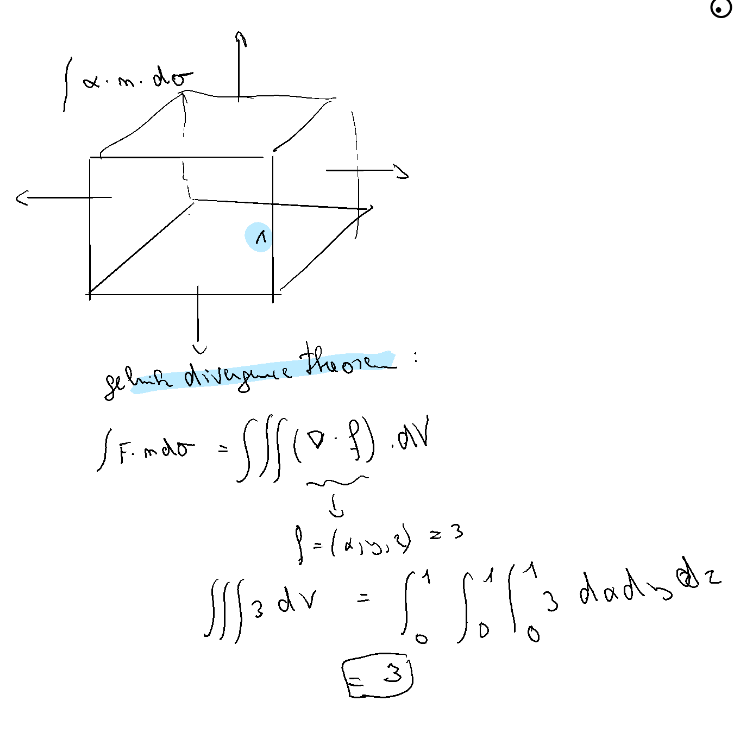 ∫ x · n · dσ
1
gebruik divergence theorem :
∫ F · n dσ = ∭ (∇ · f) · dV
f = (x, y, z) = 3
∭ 3 dV = ∫₀¹ ∫₀¹ ∫₀¹ 3 dx dy dz
= 3